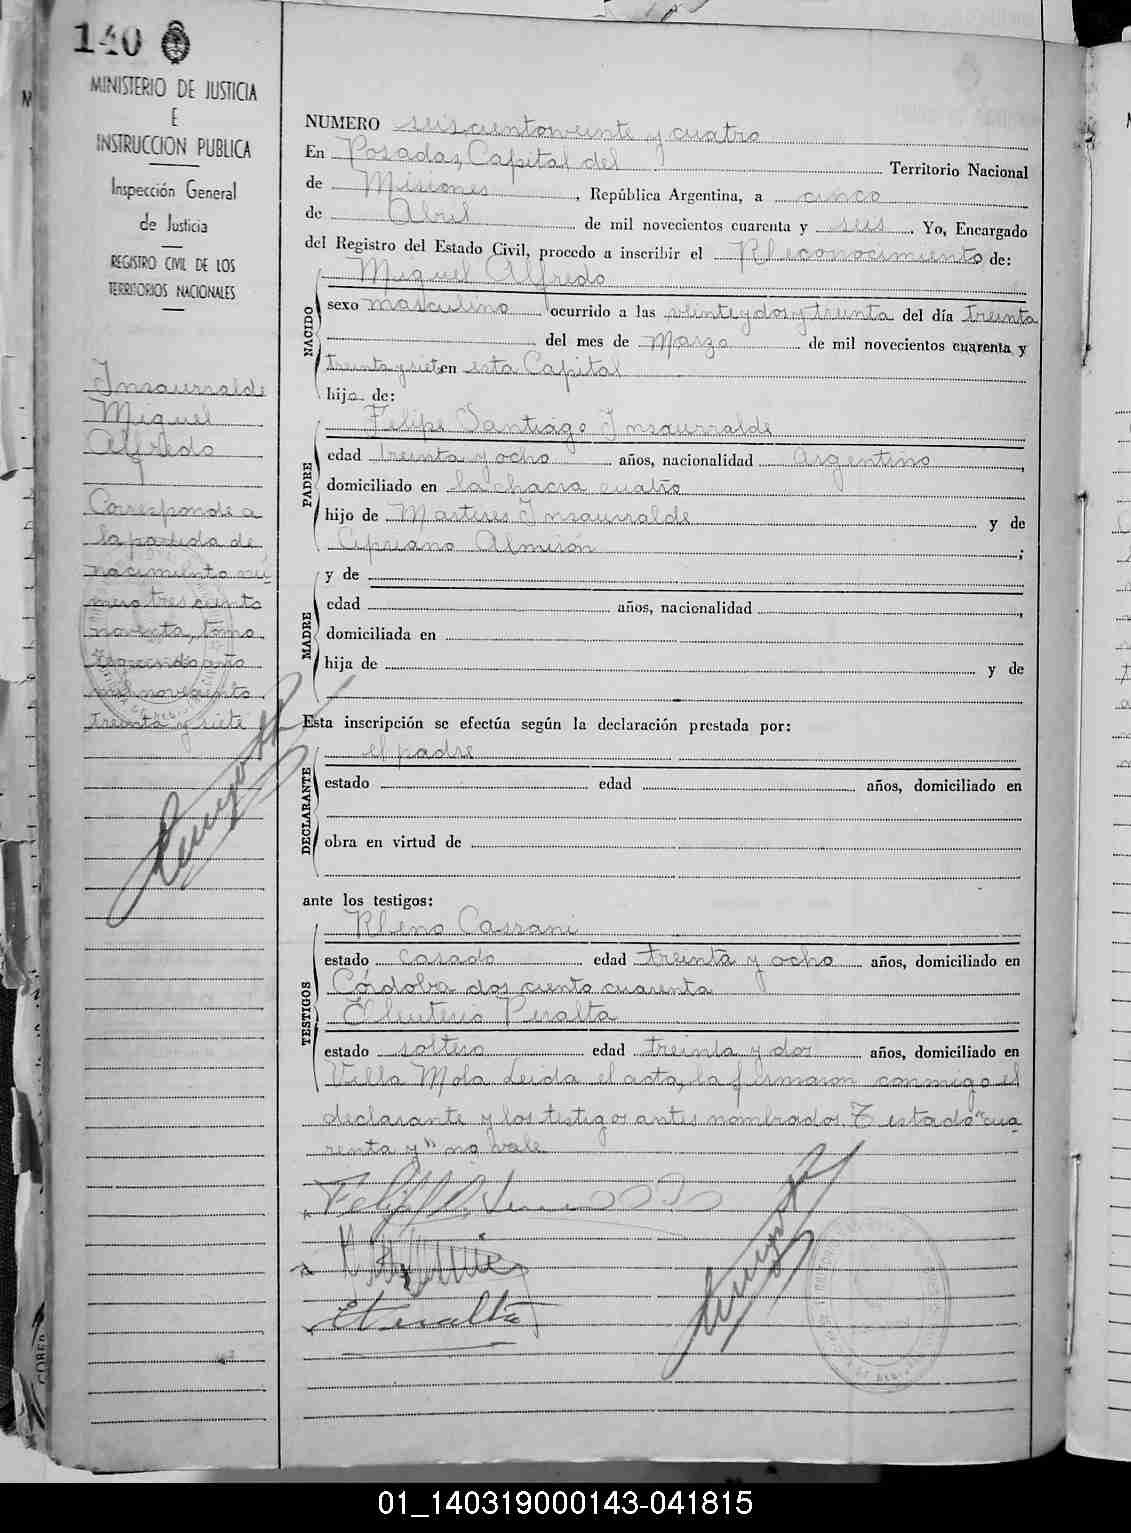 140
MINISTERIO DE JUSTICIA
E
INSTRUCCION PUBLICA
Inspección General
de Justicia
REGISTRO CIVIL DE LOS
TERRITORIOS NACIONALES
Insaurralde
Miguel
Alfredo
Corresponde a
la partida de
nacimiento nú-
mero tres ciento
noventa, tomo
segundo año
mil novecientos
treinta y siete
NUMERO seiscientos veinte y cuatro
En Posadas, Capital del Territorio Nacional
de Misiones, República Argentina, a cinco
de Abril de mil novecientos cuarenta y seis. Yo, Encargado
del Registro del Estado Civil, procedo a inscribir el Reconocimiento de:
NACIDO
Miguel Alfredo
sexo masculino ocurrido a las veinte y dos y treinta del día treinta
del mes de Marzo de mil novecientos cuarenta y
treinta y siete en esta Capital
hijo de:
PADRE
Felipe Santiago Insaurralde
edad treinta y ocho años, nacionalidad argentino,
domiciliado en la chacra cuatro
hijo de Martires Insaurralde y de
Cipriana Almirón;
MADRE
y de
edad años, nacionalidad,
domiciliada en
hija de y de
Esta inscripción se efectúa según la declaración prestada por:
DECLARANTE
el padre
estado edad años, domiciliado en
obra en virtud de
ante los testigos:
TESTIGOS
Rheno Cassani
estado casado edad treinta y ocho años, domiciliado en
Córdoba dos ciento cuarenta
Eleuterio Peralta
estado soltero edad treinta y dos años, domiciliado en
Villa Mola Leida el acta, la firmaron conmigo el
declarante y los testigos antes nombrados. Testado "cua-
renta y" no vale
E Peralta
01_140319000143-041815